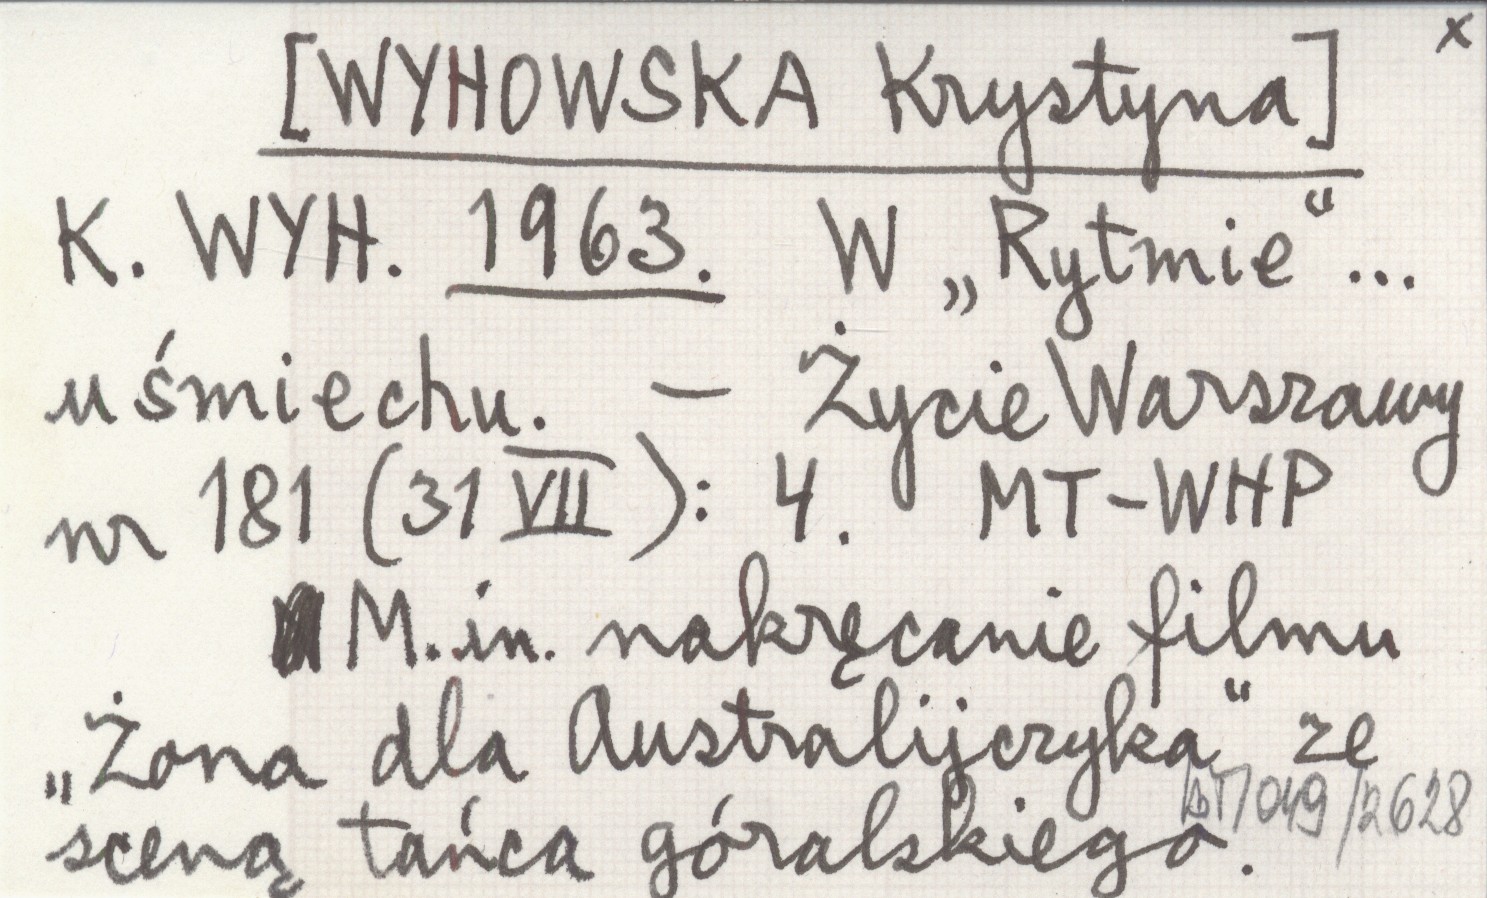 x
[WYHOWSKA Krystyna]
K. WYH. 1963. W „Rytmie“...
uśmiechu. – Życie Warszawy
nr 181 (31 VII): 4. MT-WHP
M.in. nakręcanie filmu
„Żona dla Australijczyka“ ze
sceną tańca góralskiego.
/049/2628